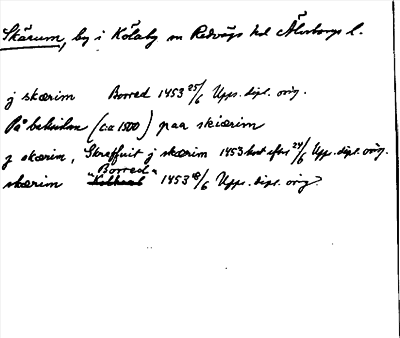 Skärum, by i Kölaby sn Redvägs hd Älvsborgs l.
j skærim Borred 1453 25/6 Upps. dipl. orig.
På baksidan (ca 1500) paa skiærim
j skærim, Skreffuit j skærim 1453 kort efter 24/6 Upps. dipl. orig.
skærim "Borred" 1453 18/6 Upps. dipl. orig?